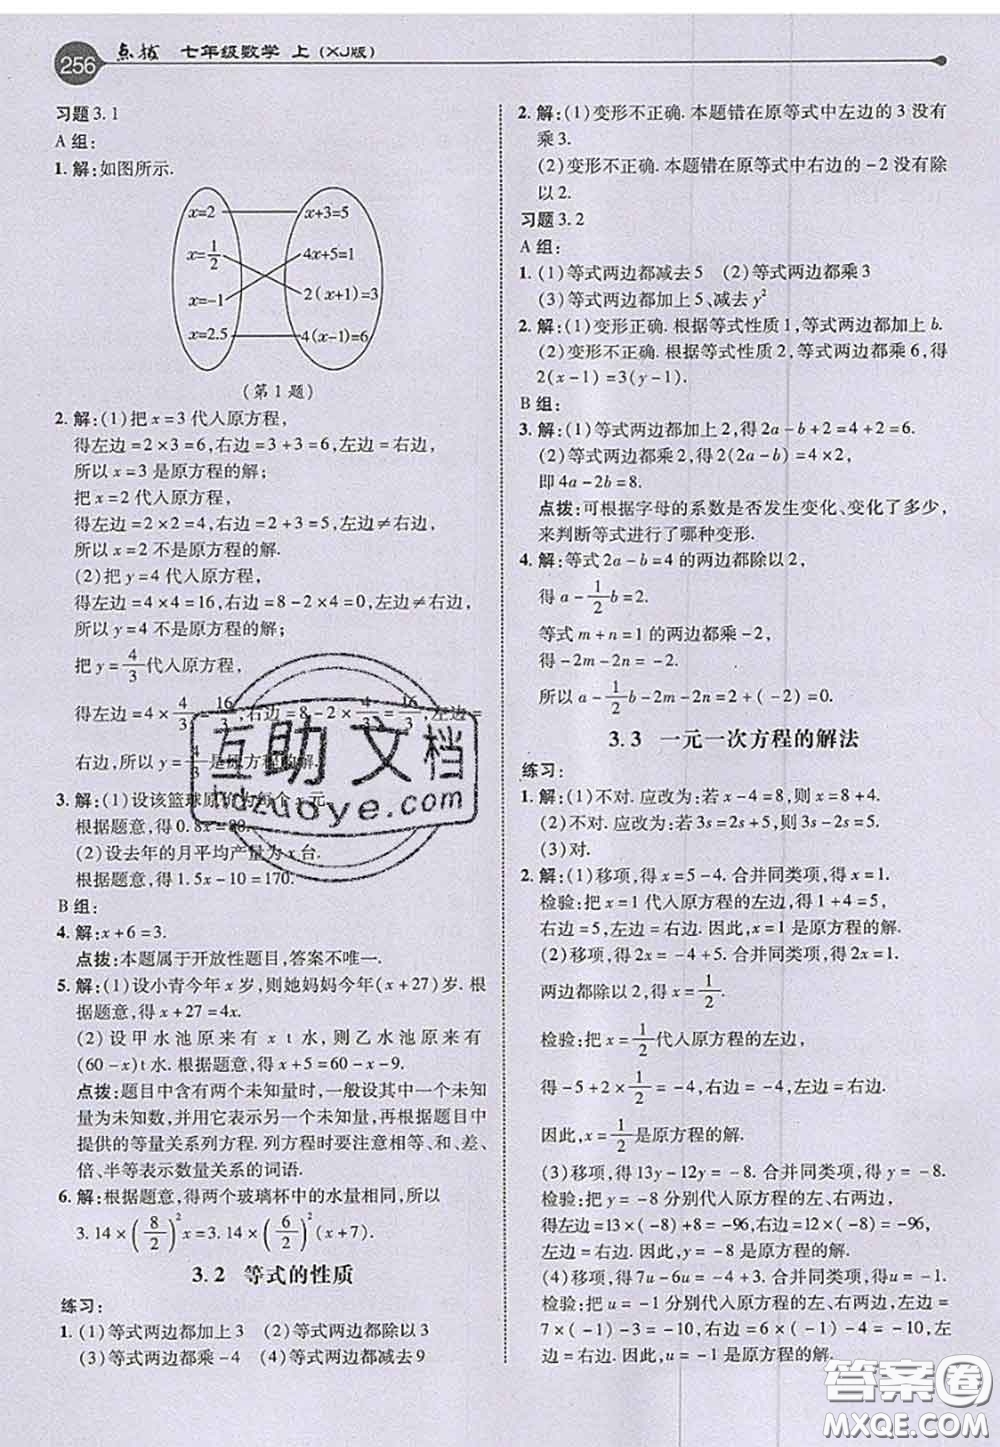 256 点拨 七年级数学 上(XJ版)
习题3.1
A组:
1. 解:如图所示.
x=2 x+3=5
x=1/2 4x+5=1
x=-1 2(x+1)=3
x=2.5 4(x-1)=6
(第1题)
2. 解:(1)把x=3代入原方程,
得左边=2×3=6,右边=3+3=6,左边=右边,
所以x=3是原方程的解;
把x=2代入原方程,
得左边=2×2=4,右边=2+3=5,左边≠右边,
所以x=2不是原方程的解.
(2)把y=4代入原方程,
得左边=4×4=16,右边=8-2×4=0,左边≠右边,
所以y=4不是原方程的解;
把y=4/3代入原方程,
得左边=4×4/3=16/3,右边=8-2×4/3=16/3,左边=
右边,所以y=4/3是原方程的解.
3. 解:(1)设该篮球原价为每个x元.
根据题意,得0.8x=88.
(2)设去年的月平均产量为x台.
根据题意,得1.5x-10=170.
B组:
4. 解:x+6=3.
点拨:本题属于开放性题目,答案不唯一.
5. 解:(1)设小青今年x岁,则她妈妈今年(x+27)岁. 根
据题意,得x+27=4x.
(2)设甲水池原来有x t水,则乙水池原来有
(60-x)t水. 根据题意,得x+5=60-x-9.
点拨:题目中含有两个未知量时,一般设其中一个未知
量为未知数,并用它表示另一个未知量,再根据题目中
提供的等量关系列方程. 列方程时要注意相等、和、差、
倍、半等表示数量关系的词语.
6. 解:根据题意,得两个玻璃杯中的水量相同,所以
3.14×(8/2)²x=3.14×(6/2)²(x+7).
3.2 等式的性质
练习:
1. (1)等式两边都加上3 (2)等式两边都除以3
(3)等式两边都乘-4 (4)等式两边都减去9
2. 解:(1)变形不正确. 本题错在原等式中左边的3没有
乘3.
(2)变形不正确. 本题错在原等式中右边的-2没有除
以2.
习题3.2
A组:
1. (1)等式两边都减去5 (2)等式两边都乘3
(3)等式两边都加上5、减去y²
2. 解:(1)变形正确. 根据等式性质1,等式两边都加上b.
(2)变形正确. 根据等式性质2,等式两边都乘6,得
2(x-1)=3(y-1).
B组:
3. 解:(1)等式两边都加上2,得2a-b+2=4+2=6.
(2)等式两边都乘2,得2(2a-b)=4×2,
即4a-2b=8.
点拨:可根据字母的系数是否发生变化、变化了多少,
来判断等式进行了哪种变形.
4. 解:等式2a-b=4的两边都除以2,
得a-1/2b=2.
等式m+n=1的两边都乘-2,
得-2m-2n=-2.
所以a-1/2b-2m-2n=2+(-2)=0.
3.3 一元一次方程的解法
练习:
1. 解:(1)不对. 应改为:若x-4=8,则x=8+4.
(2)不对. 应改为:若3s=2s+5,则3s-2s=5.
(3)对.
2. 解:(1)移项,得x=5-4. 合并同类项,得x=1.
检验:把x=1代入原方程的左边,得1+4=5,
右边=5,左边=右边. 因此,x=1是原方程的解.
(2)移项,得2x=-4+5. 合并同类项,得2x=1.
两边都除以2,得x=1/2.
检验:把x=1/2代入原方程的左边,
得-5+2×1/2=-4,右边=-4,左边=右边.
因此,x=1/2是原方程的解.
(3)移项,得13y-12y=-8. 合并同类项,得y=-8.
检验:把y=-8分别代入原方程的左、右两边,
得左边=13×(-8)+8=-96,右边=12×(-8)=-96,
左边=右边. 因此,y=-8是原方程的解.
(4)移项,得7u-6u=-4+3. 合并同类项,得u=-1.
检验:把u=-1分别代入原方程的左、右两边,得左边=
7×(-1)-3=-10,右边=6×(-1)-4=-10,左
边=右边. 因此,u=-1是原方程的解.
互助文档
hdzuoye.com
答案圈
MXQE.COM